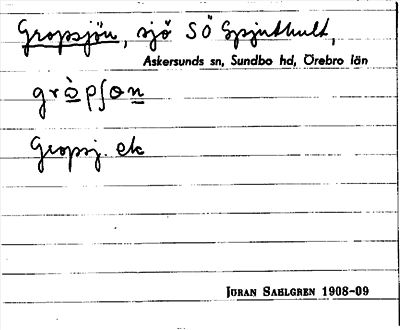 Gropsjön, sjö SÖ Spjuthult,
Askersunds sn, Sundbo hd, Örebro län
gròpʃơn
Gropsj. ek
JÖRAN SAHLGREN 1908-09